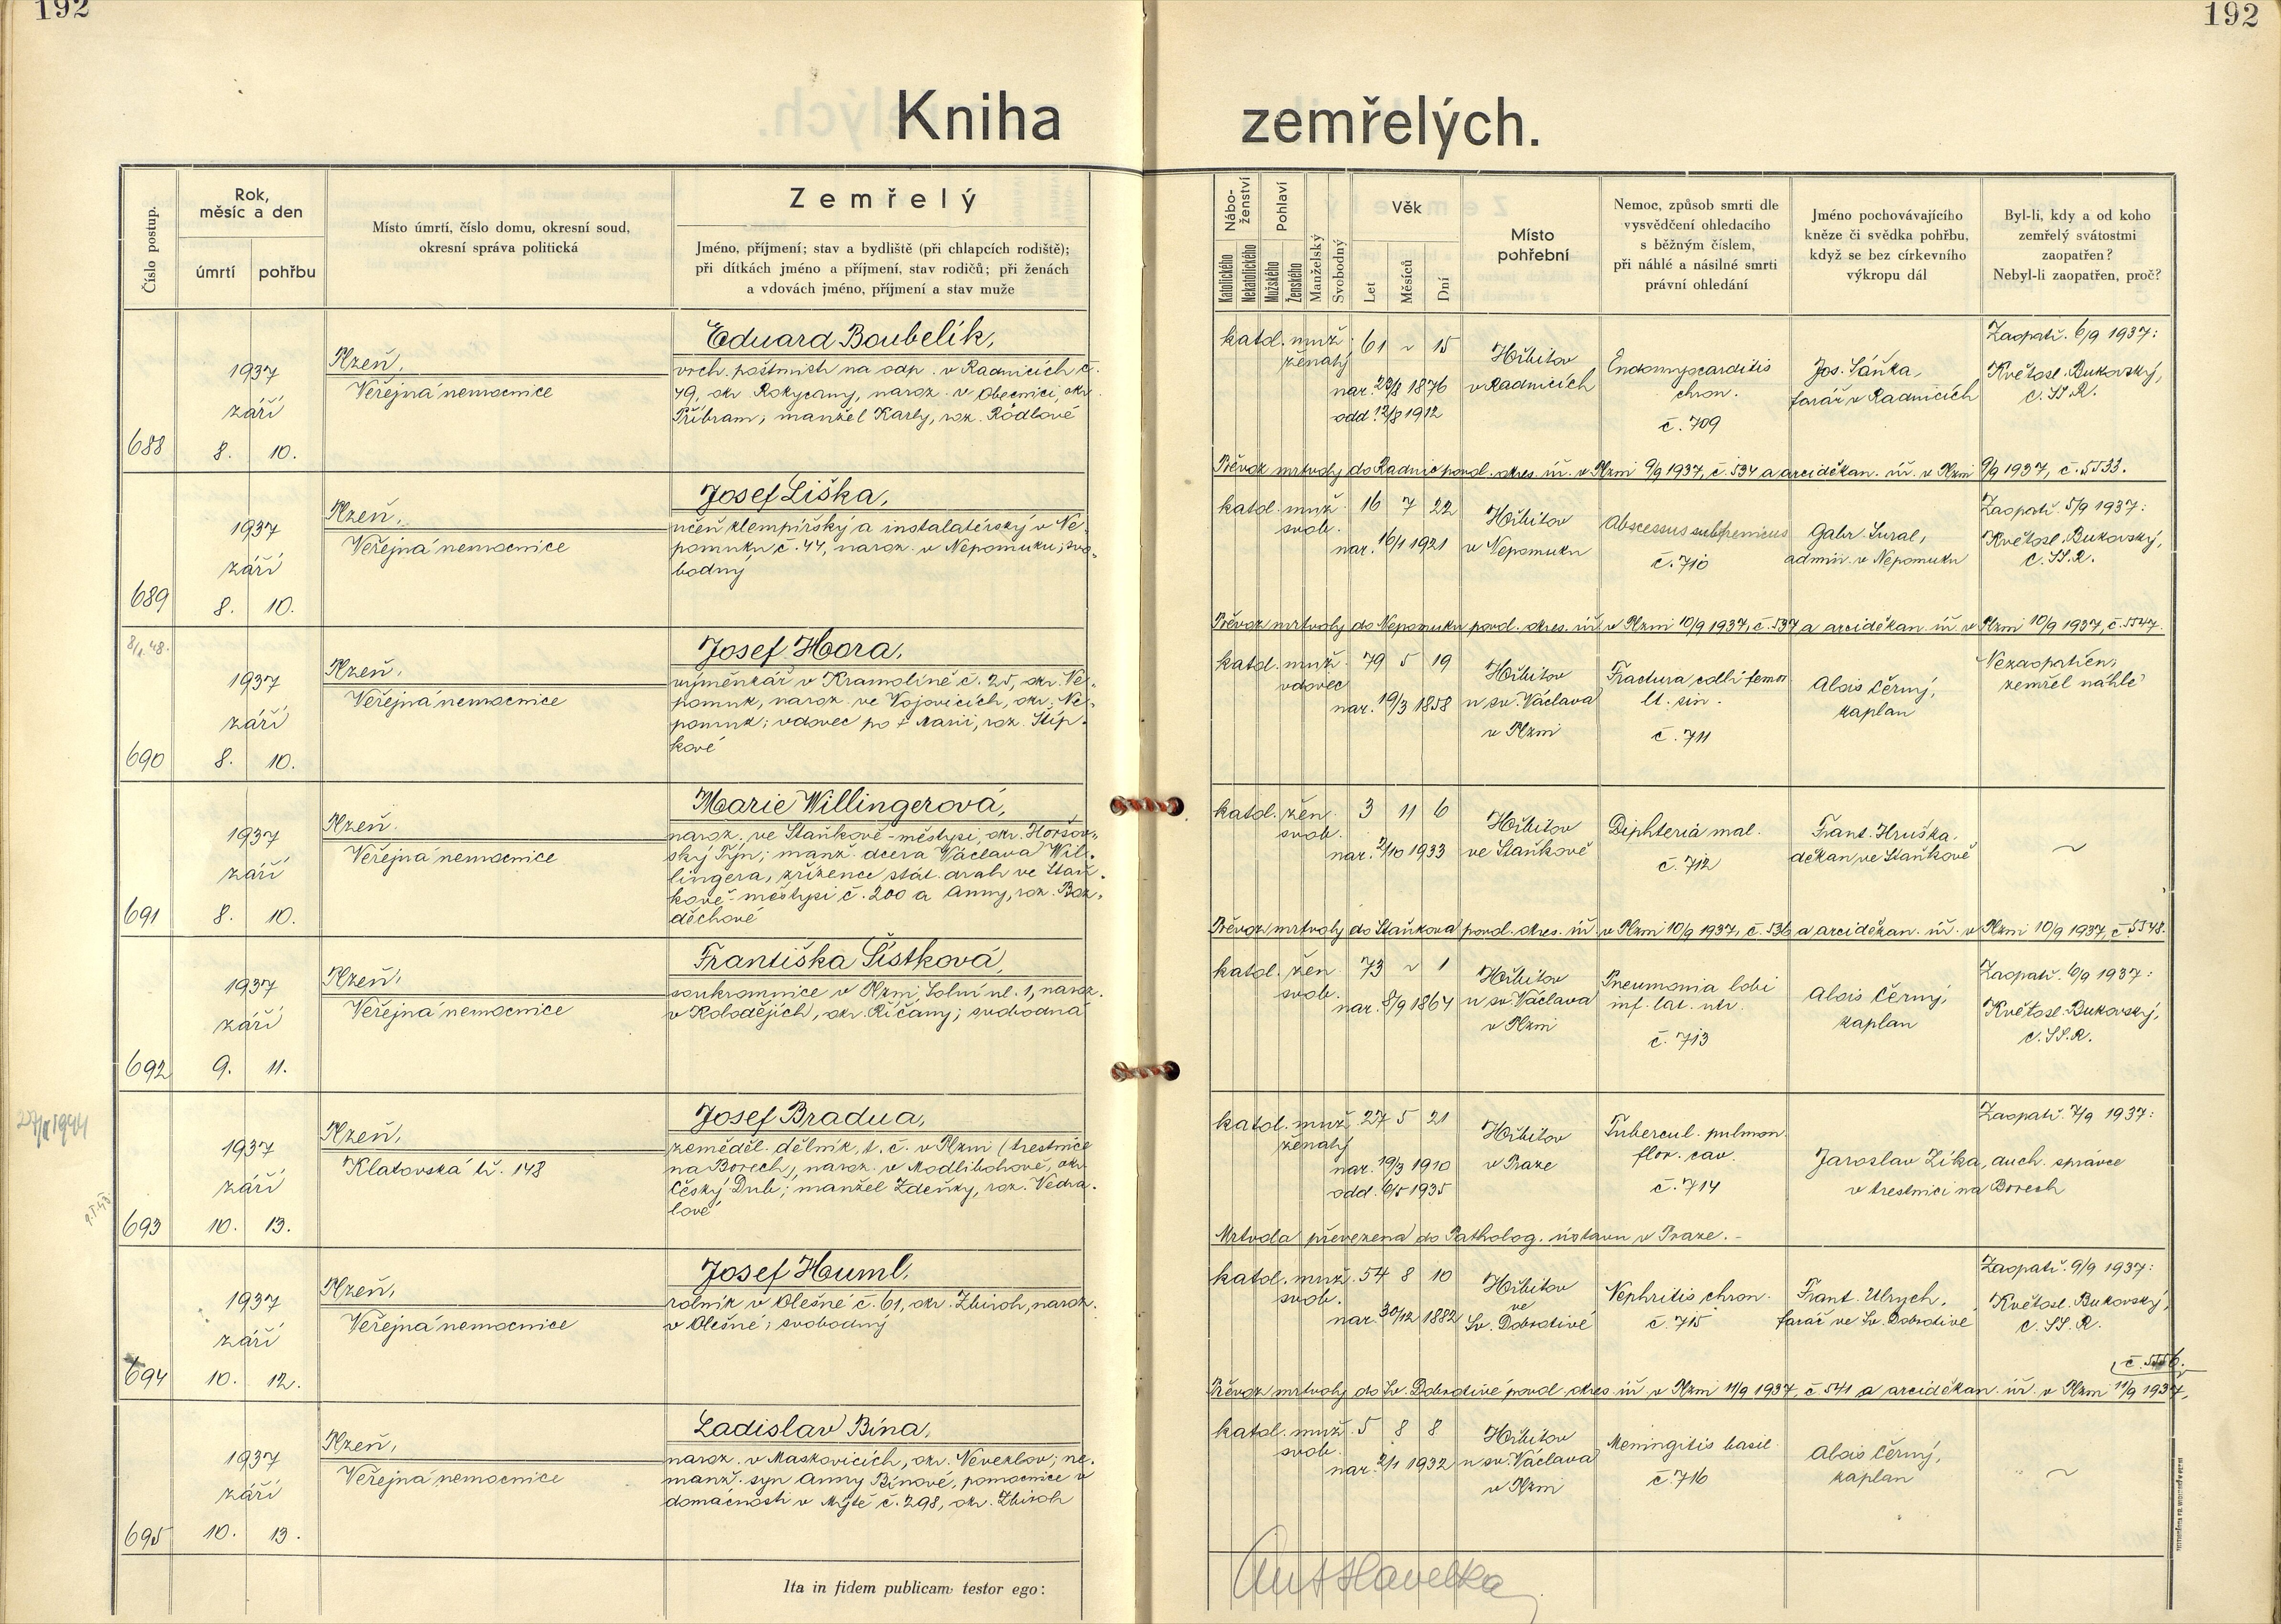 192
192
Kniha zemřelých.
Číslo postup.
Rok,
měsíc a den
úmrtí
pohřbu
Místo úmrtí, číslo domu, okresní soud,
okresní správa politická
Zemřelý
Jméno, příjmení; stav a bydliště (při chlapcích rodiště);
při dítkách jméno a příjmení, stav rodičů; při ženách
a vdovách jméno, příjmení a stav muže
Nábo-
ženství
Katolického
Nekatolického
Pohlaví
Mužského
Ženského
Manželský
Svobodný
Věk
Let
Měsíců
Dní
Místo
pohřební
Nemoc, způsob smrti dle
vysvědčení ohledacího
s běžným číslem,
při náhlé a násilné smrti
právní ohledání
Jméno pochovávajícího
kněze či svědka pohřbu,
když se bez církevního
výkropu dál
Byl-li, kdy a od koho
zemřelý svátostmi
zaopatřen?
Nebyl-li zaopatřen, proč?
688
1937
září
8. 10.
Plzeň,
Veřejná nemocnice
Eduard Boubelík,
vrch. poštmistr na odp. v Radnicích č.
49, okr. Rokycany, naroz. v Obecnici, okr.
Příbram; manžel Karly, roz. Rödlové
katol. muž. 61 ~ 15
ženatý
nar. 23/8 1876
odd. 12/8 1912
Hřbitov
v Radnicích
Endomyocarditis
chron.
č. 709
Jos. Sáňka,
farář v Radnicích
Zaopatř. 6/9 1937:
Květosl. Bukovský,
C. SS. R.
Převoz mrtvoly do Radnic povol. okres. úř. v Plzni 9/9 1937, č. 534 a arciděkan. úř. v Plzni 9/9 1937, č. 5533.
689
1937
září
8. 10.
Plzeň,
Veřejná nemocnice
Josef Liška,
učeň klempířský a instalatérský v Ne-
pomuku č. 44, naroz. v Nepomuku; svo-
bodný
katol. muž. 16 7 22
svob.
nar. 16/1 1921
Hřbitov
v Nepomuku
Abscessus subphrenicus
č. 710
Gabr. Sural,
admin. v Nepomuku
Zaopatř. 5/9 1937:
Květosl. Bukovský,
C. SS. R.
Převoz mrtvoly do Nepomuku povol. okres. úř. v Plzni 10/9 1937, č. 537 a arciděkan. úř. v Plzni 10/9 1937, č. 5547.
8/1.48.
690
1937
září
8. 10.
Plzeň,
Veřejná nemocnice
Josef Hora,
výměnkář v Kramolíně č. 25, okr. Ne-
pomuk, naroz. ve Vojovicích, okr. Ne-
pomuk; vdovec po † Marii, roz. Štíp-
kové
katol. muž. 79 5 19
vdovec
nar. 19/3 1858
Hřbitov
u sv. Václava
v Plzni
Fractura colli femor.
lt. sin.
č. 711
Alois Černý,
kaplan
Nezaopatřen,
zemřel náhle
691
1937
září
8. 10.
Plzeň.
Veřejná nemocnice
Marie Willingerová,
naroz. ve Staňkově-městysi, okr. Horšov-
ský Týn; manž. dcera Václava Wil-
lingera, zřízence stát. drah ve Staň-
kově-městysi č. 200 a Anny, roz. Boz-
děchové
katol. žen. 3 11 6
svob.
nar. 2/10 1933
Hřbitov
ve Staňkově
Diphteria mal.
č. 712
Frant. Hruška,
děkan ve Staňkově
~
Převoz mrtvoly do Staňkova povol. okres. úř. v Plzni 10/9 1937, č. 536 a arciděkan. úř. v Plzni 10/9 1937, č. 5548.
692
1937
září
9. 11.
Plzeň,
Veřejná nemocnice
Františka Šístková,
soukromnice v Plzni, Solní ul. 1, naroz.
v Kolodějích, okr. Říčany; svobodná
katol. žen. 73 ~ 1
svob.
nar. 8/9 1864
Hřbitov
u sv. Václava
v Plzni
Pneumonia lobi
inf. lat. utr.
č. 713
Alois Černý,
kaplan
Zaopatř. 6/9 1937:
Květosl. Bukovský,
C. SS. R.
693
1937
září
10. 13.
Plzeň,
Klatovská tř. 148
Josef Bradua,
zeměděl. dělník, t. č. v Plzni (trestnice
na Borech), naroz. v Modlibohově, okr.
Český Dub; manžel Zdeňky, roz. Vedra-
lové
katol. muž. 27 5 21
ženatý
nar. 19/3 1910
odd. 6/5 1935
Hřbitov
v Praze
Tubercul. pulmon.
flor. cav.
č. 714
Zaopatř. 7/9 1937:
Jaroslav Zíka, duch. správce
v trestnici na Borech
Mrtvola převezena do Patholog. ústavu v Praze. -
694
1937
září
10. 12.
Plzeň,
Veřejná nemocnice
Josef Huml,
rolník v Olešné č. 61, okr. Zbiroh, naroz.
v Olešné; svobodný
katol. muž. 54 8 10
svob.
nar. 30/12 1882
Hřbitov
ve
Sv. Dobrotivé
Nephritis chron.
č. 715
Frant. Ulrych,
farář ve Sv. Dobrotivé
Zaopatř. 9/9 1937:
Květosl. Bukovský,
C. SS. R.
Převoz mrtvoly do Sv. Dobrotivé povol. okres. úř. v Plzni 11/9 1937, č. 541 a arciděkan. úř. v Plzni 11/9 1937, č. 5556.
695
1937
září
10. 13.
Plzeň,
Veřejná nemocnice
Ladislav Bína,
naroz. v Maskovicích, okr. Neveklov; ne-
manž. syn Anny Bínové, pomocnice v
domácnosti v Mýtě č. 298, okr. Zbiroh
katol. muž. 5 8 8
svob.
nar. 2/1 1932
Hřbitov
u sv. Václava
v Plzni
Meningitis basil.
č. 716
Alois Černý,
kaplan
~
Ita in fidem publicam testor ego:
Ant Havelka